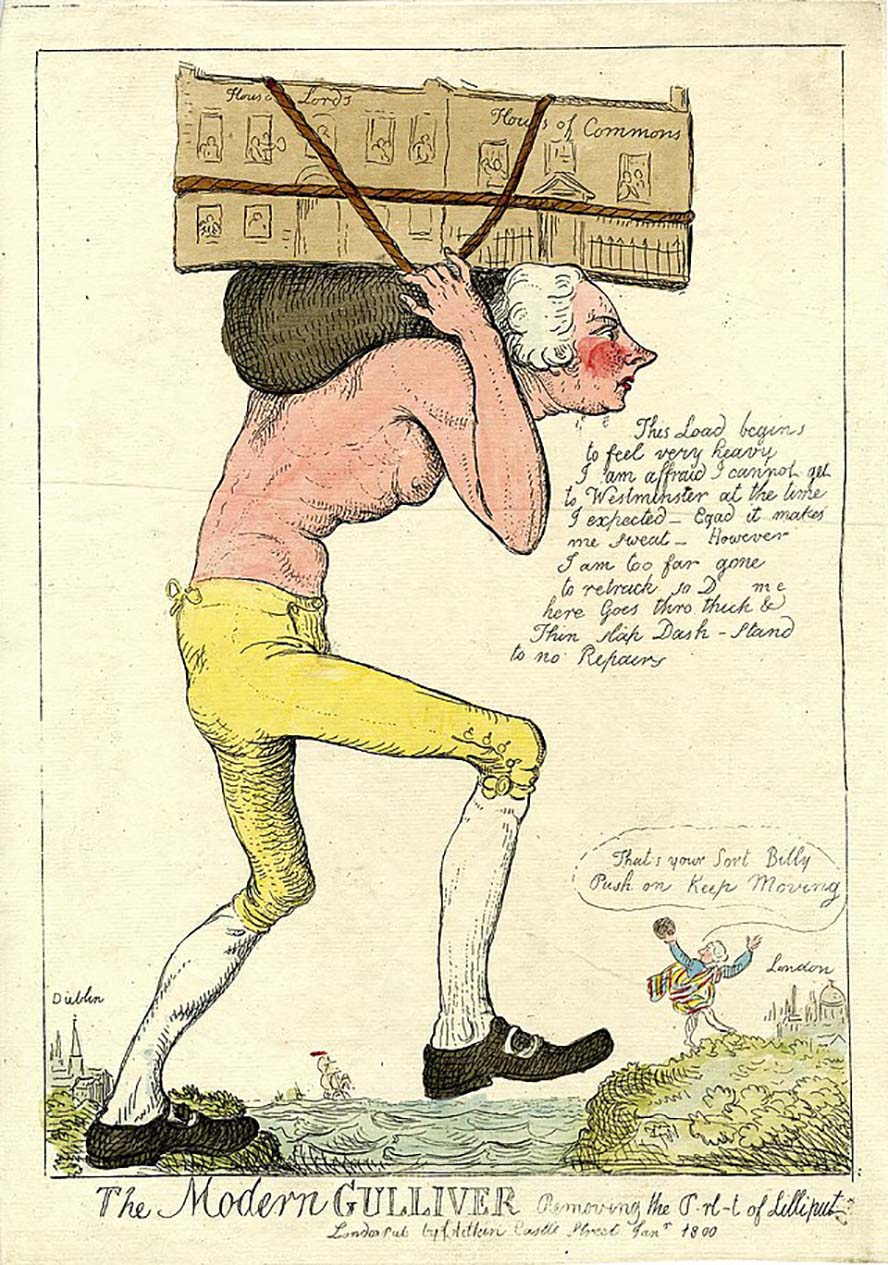 House of Lords
Houses of Commons
This Load begins
to feel very heavy
I am affraid I cannot get
to Westminster at the time
I expected – Egad it makes
me sweat – However
I am too far gone
to retrack so D me
here Goes thro thick &
Thin slap Dash – Stand
to no Repairs
That's your Sort Billy
Push on Keep Moving
London
Dublin
The Modern GULLIVER Removing the P-rl-t of Lilliput
London Pub by Aitkin Castle Street Jan 1800